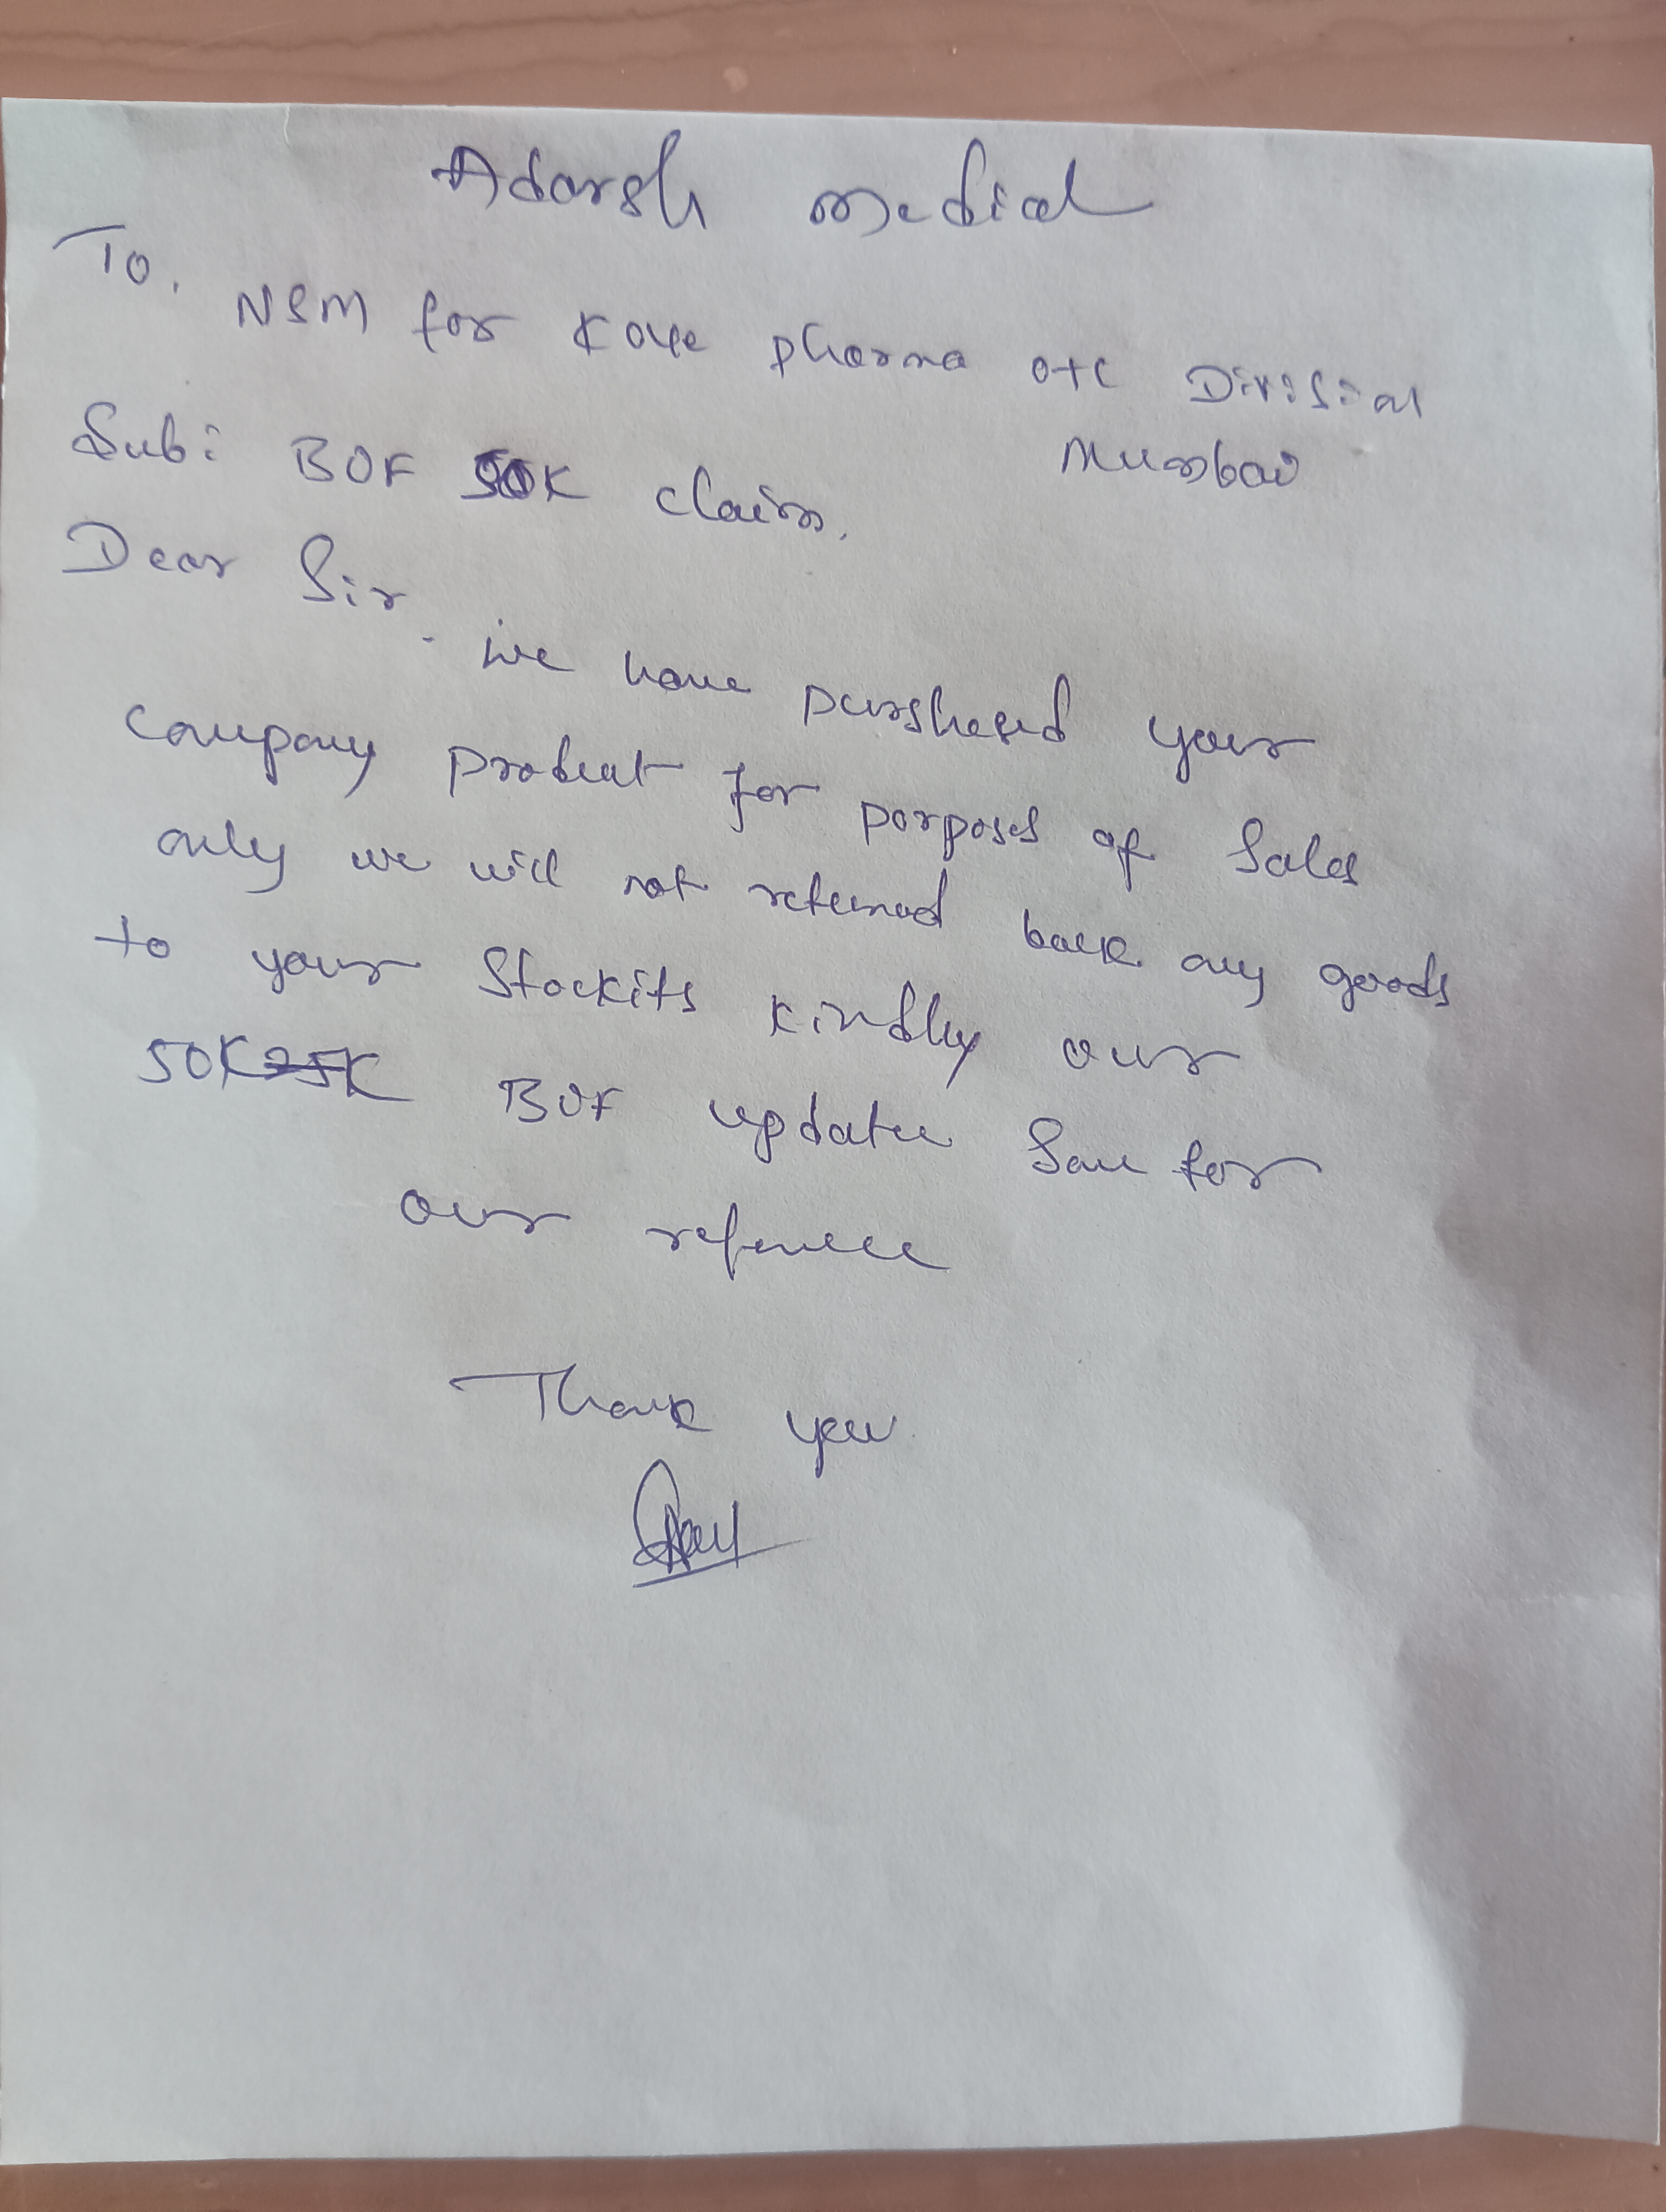 Adarsh medical
To.
NSM for Koye pharma OTC Division
Mumbai
Sub: BOF 50K claim.
Dear Sir.
we have purshesed your
company product for porposes of Sales
only we will not returned back any goods
to your Stockits kindly our
50K 25K BOF update Same for
our refernece
Thank you